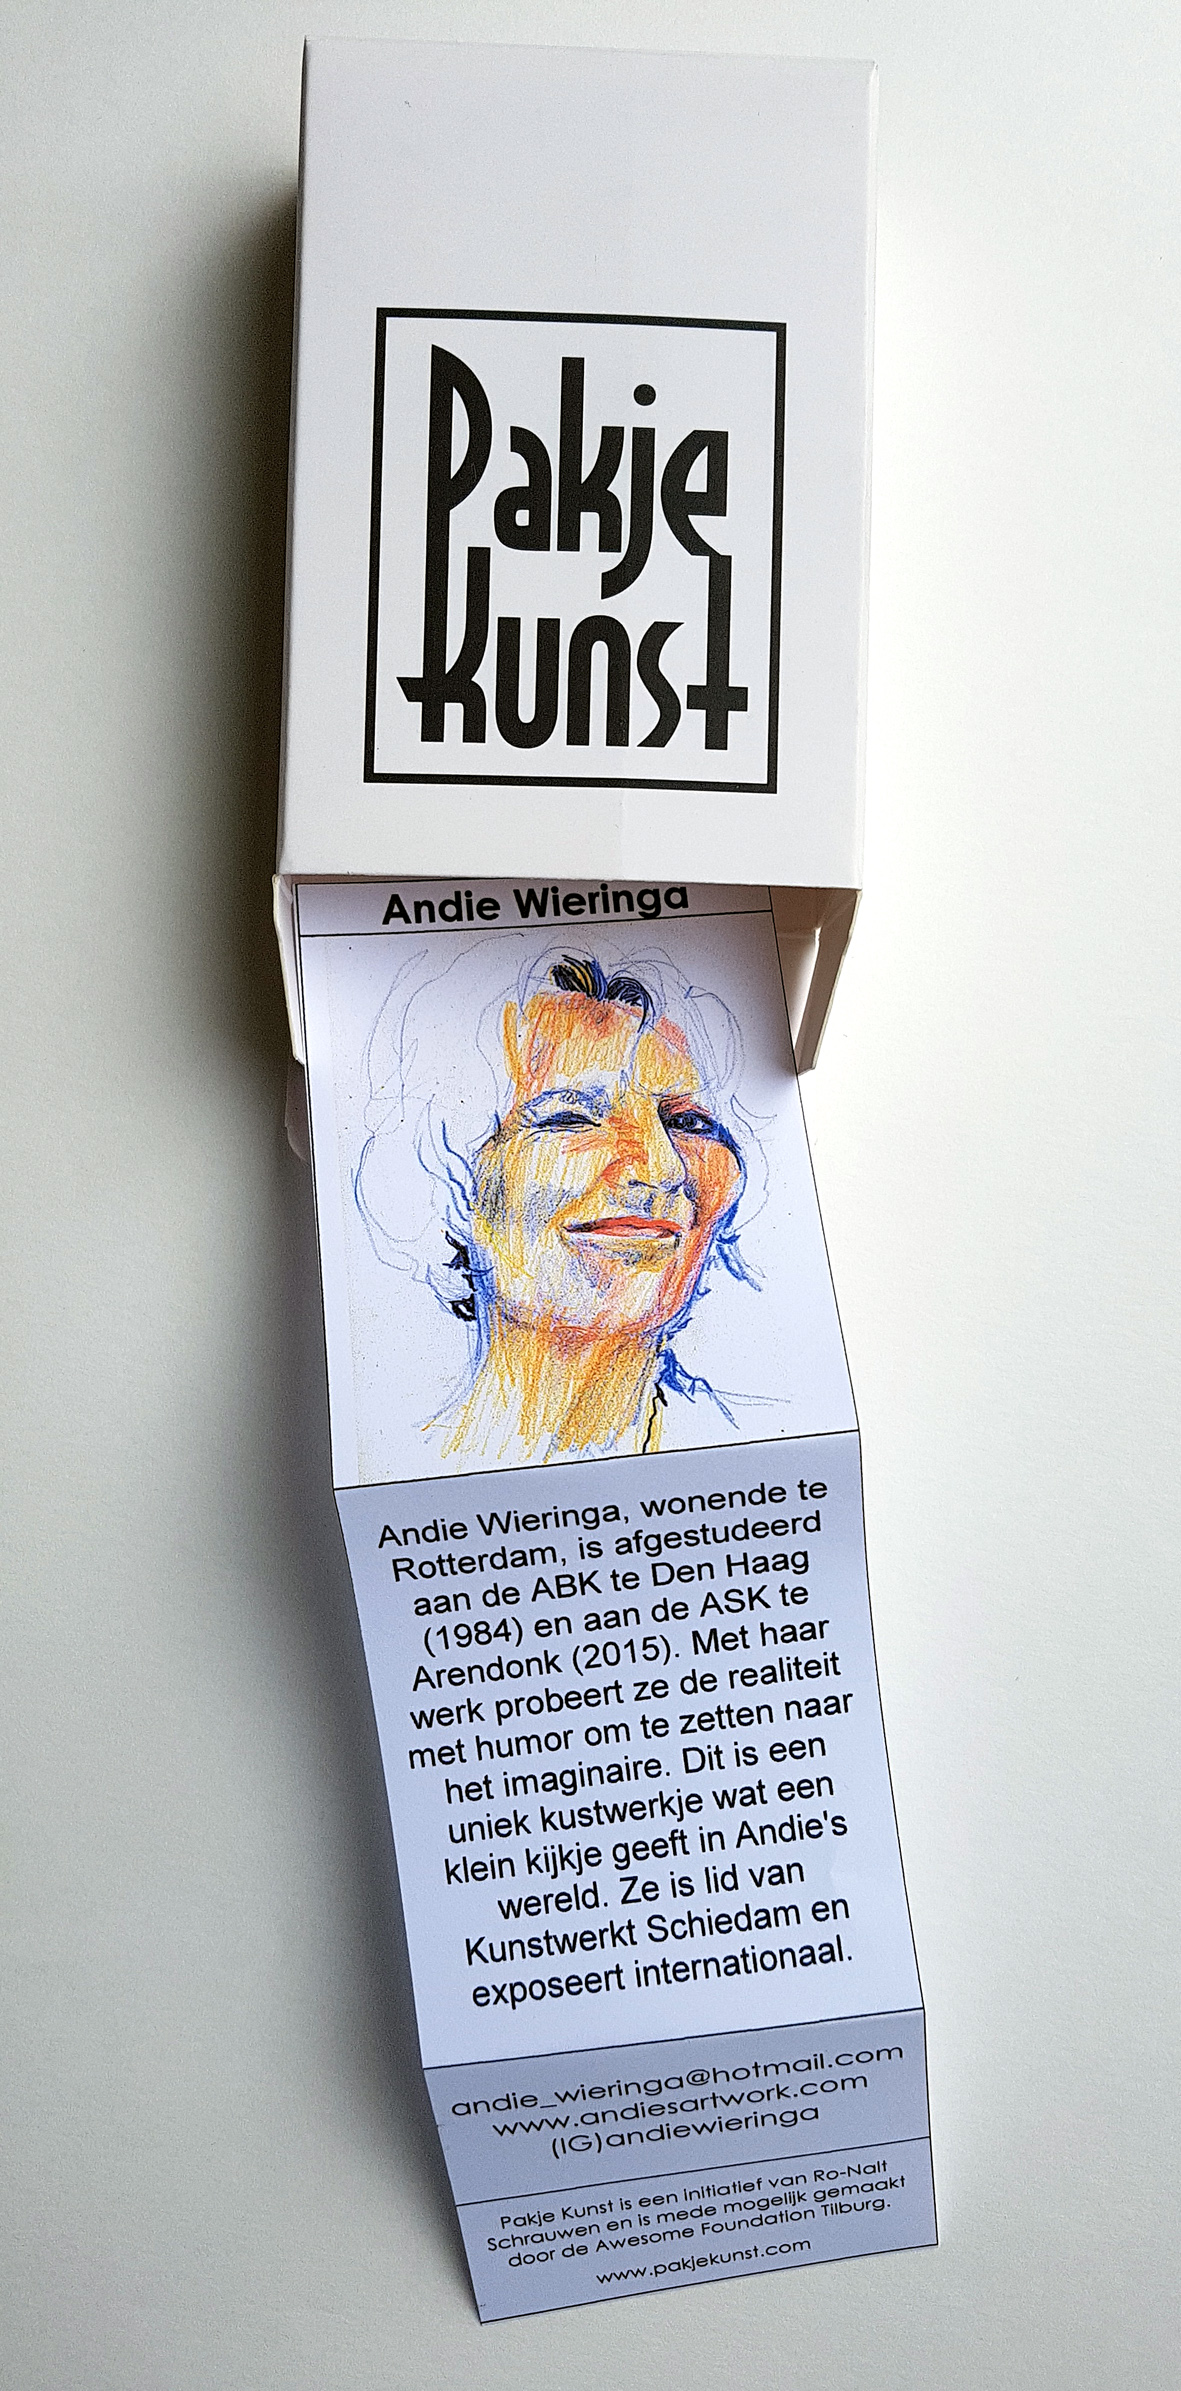 Pakje
Kunst
Andie Wieringa
Andie Wieringa, wonende te
Rotterdam, is afgestudeerd
aan de ABK te Den Haag
(1984) en aan de ASK te
Arendonk (2015). Met haar
werk probeert ze de realiteit
met humor om te zetten naar
het imaginaire. Dit is een
uniek kustwerkje wat een
klein kijkje geeft in Andie's
wereld. Ze is lid van
Kunstwerkt Schiedam en
exposeert internationaal.
andie_wieringa@hotmail.com
www.andiesartwork.com
(IG)andiewieringa
Pakje Kunst is een initiatief van Ro-Nalt
Schrauwen en is mede mogelijk gemaakt
door de Awesome Foundation Tilburg.
www.pakjekunst.com